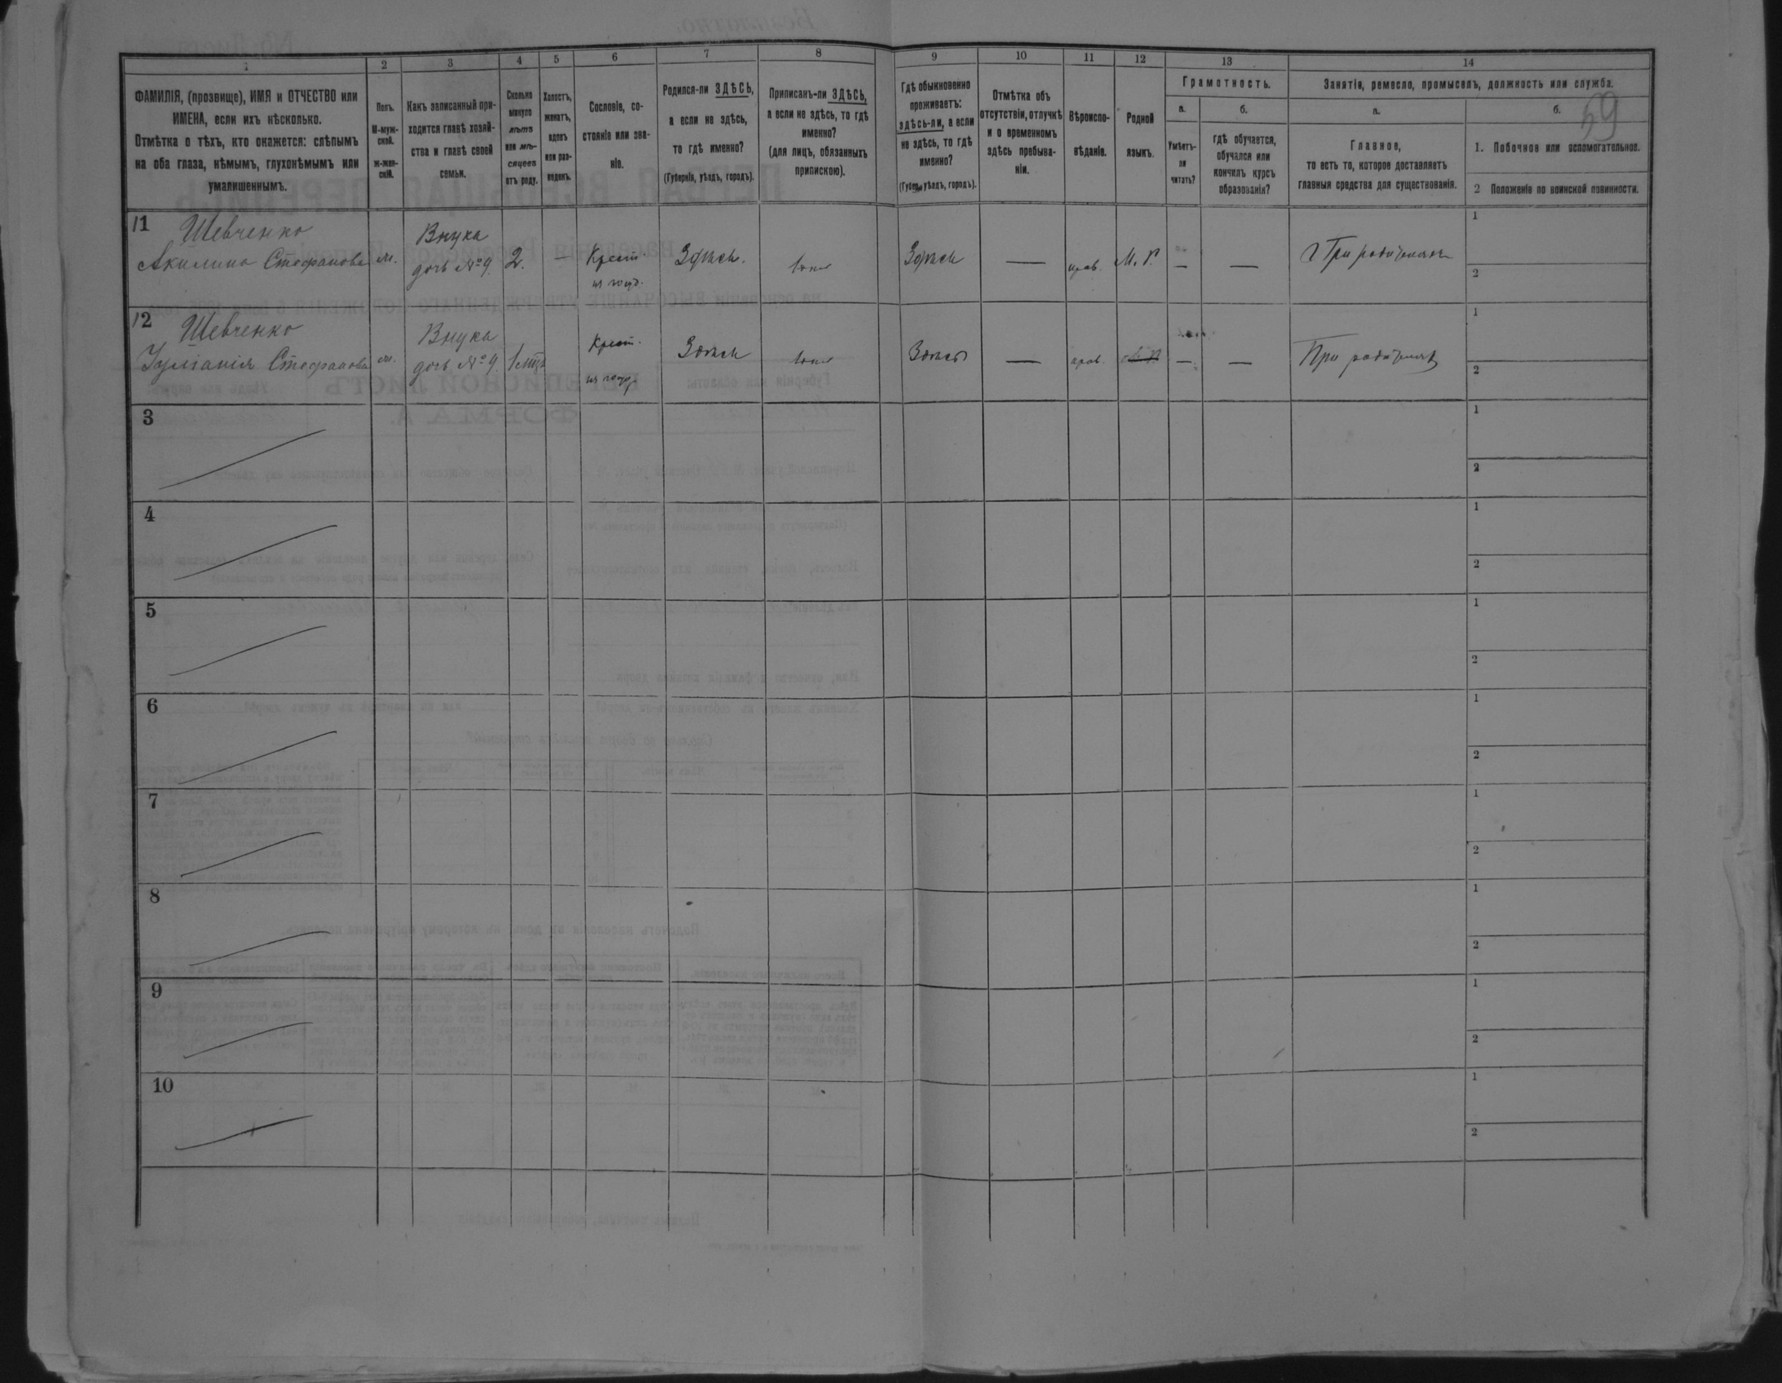 59
1
2
3
4
5
6
7
8
9
10
11
12
13
14
ФАМИЛІЯ, (прозвище), ИМЯ и ОТЧЕСТВО или
ИМЕНА, если ихъ нѣсколько.
Отмѣтка о тѣхъ, кто окажется: слѣпымъ
на оба глаза, нѣмымъ, глухонѣмымъ или
умалишеннымъ.
Полъ.
М-муж-
ской.
ж-жен-
скій.
Какъ записанный при-
ходится главѣ хозяй-
ства и главѣ своей
семьи.
Сколько
минуло
лѣтъ
или мѣ-
сяцевъ
отъ роду.
Холостъ,
женатъ,
вдовъ
или раз-
веденъ.
Сословіе, со-
стояніе или зва-
ніе.
Родился-ли ЗДѢСЬ,
а если не здѣсь,
то гдѣ именно?
(Губернія, уѣздъ, городъ).
Приписанъ-ли ЗДѢСЬ,
а если не здѣсь, то гдѣ
именно?
(для лицъ, обязанныхъ
припискою).
Гдѣ обыкновенно
проживаетъ:
здѣсь-ли, а если
не здѣсь, то гдѣ
именно?
(Губерн. уѣздъ, городъ).
Отмѣтка объ
отсутствіи, отлучкѣ
и о временномъ
здѣсь пребыва-
ніи.
Вѣроиспо-
вѣданіе.
Родной
языкъ.
Грамотность.
а.
Умѣетъ-
ли
читать?
б.
гдѣ обучается,
обучался или
кончилъ курсъ
образованія?
Занятіе, ремесло, промыселъ, должность или служба.
а.
Главное,
то есть то, которое доставляетъ
главныя средства для существованія.
б.
1. Побочное или вспомогательное.
2 Положеніе по воинской повинности.
11
Шевченко
Акилина Стефанова
Внука
дочь № 9
2.
—
Крест.
Здѣсь.
Здѣсь
—
прав.
М. Р.
—
—
При родителяхъ
1
2
12
Шевченко
Іуліанія Стефанова
Внука
дочь № 9.
Крест.
Здѣсь
Здѣсь
—
прав.
—
—
При родителях
1
2
3
1
2
4
1
2
5
1
2
6
1
2
7
1
2
8
1
2
9
1
2
10
1
2